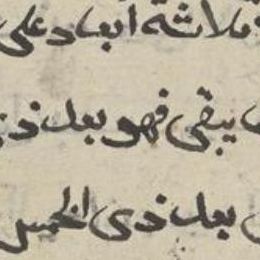 ثلاثة ابعاد على
يبقى فهو بعد ذى
بعد ذى الخمس